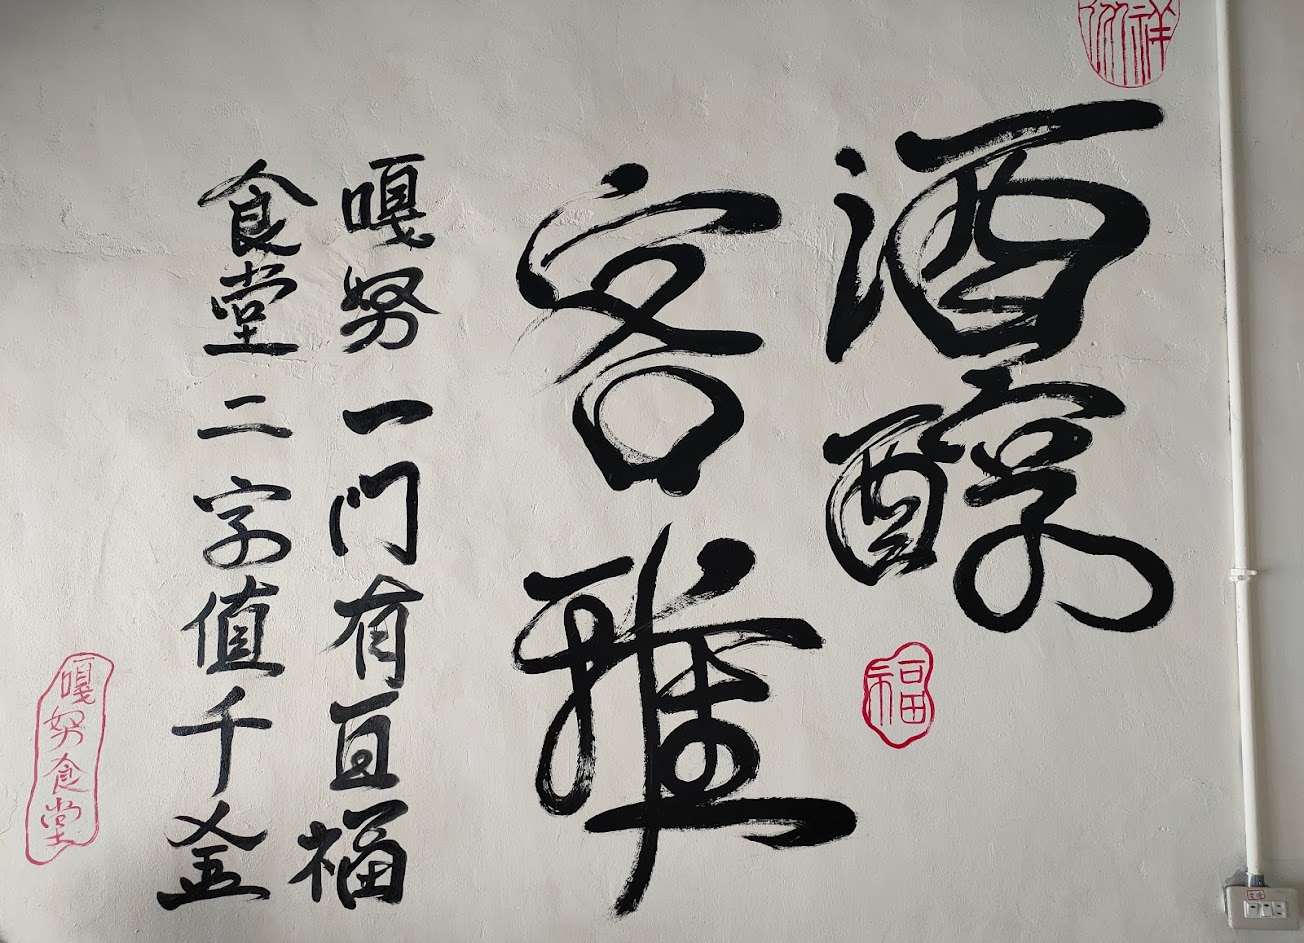 祥
酒醇
福
客雅
嘎努一門有百福
食堂二字值千金
嘎努食堂